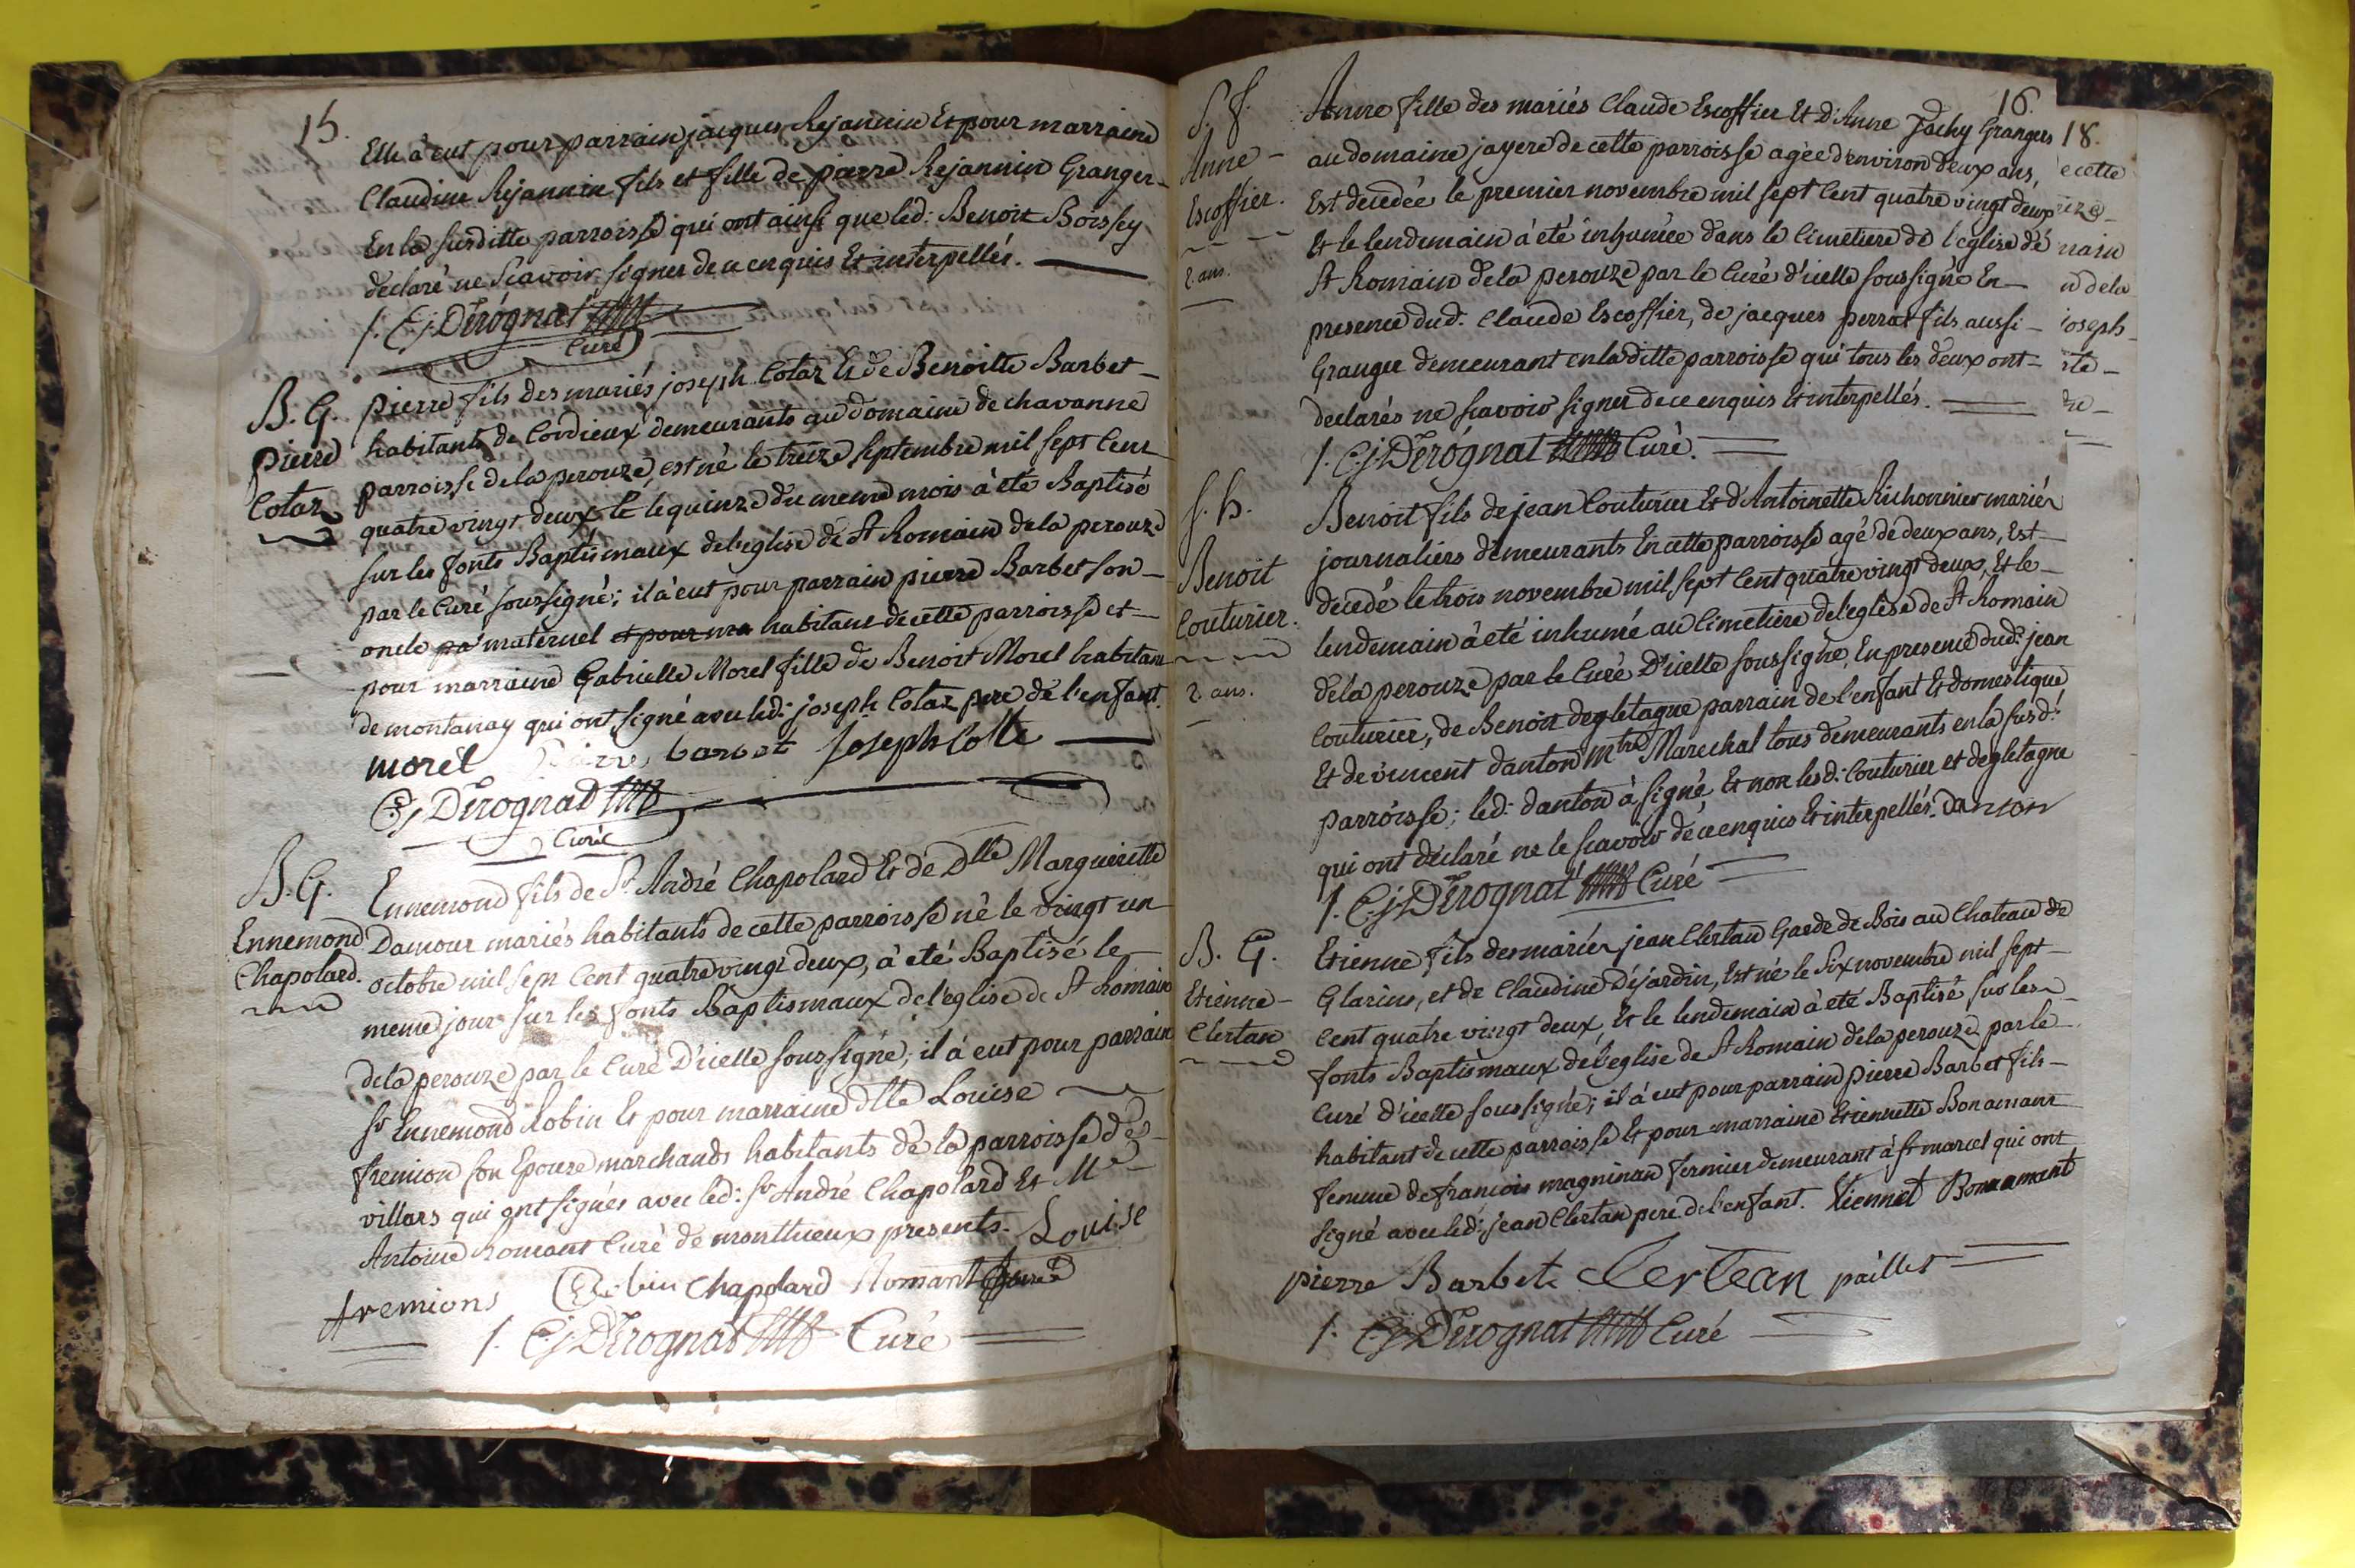 15.
Elle à eut pour parrain jacques Rejannin Et pour marraine
Claudine Rejannin fils et fille de pierre Rejannin Granger
En la susditte parroisse qui ont ainsi que led: Benoit Boissey
déclaré ne scavoir signer de ce enquis Et interpellés.
C,j, Dérognat
Curé
B. G.
pierre
Cotaz
pierre fils des mariés joseph Cotaz Et de Benoitte Barbet
habitants de Cordieux demeurants au domaine de chavanne
parroisse de la perouze, est né le treize septembre mil sept Cent
quatre vingt deux, Et le quinze du meme mois à été Baptisé
sur les fonts Baptismaux de l'eglise de St Romain de la perouze
par le Curé soussigné; il à eut pour parrain pierre Barbet son
oncle pa maternel et pour ma habitant de cette parroisse et
pour marraine Gabrielle Morel fille de Benoit Morel habitant
de montanay qui ont signé avec led: joseph Cotaz pere de l'enfant.
morel Pierre barbet Joseph Cotte
C,j, Dérognat
Curé
B. G.
Ennemond
Chapolard.
Ennemond fils de Sr André Chapolard Et de Dlle Margueritte
Damour mariés habitants de cette parroisse né le vingt un
octobre mil sept Cent quatre vingt deux, à été Baptisé le
meme jour sur les fonts Baptismaux de l'eglise de St Romain
de la perouze par le Curé D'icelle soussigné; il à eut pour parrain
Sr Ennemond Robin Et pour marraine dlle Louise
fremion son Epouse marchands habitants de la parroisse de
villars qui ont signés avec led: Sr André Chapolard Et Mre
Antoine Romant Curé de monthieux presents. Louise
fremions Robin Chapolard Romant Curé
C,j, Dérognat Curé
16.
S. f.
Anne
Escoffier.
2. ans.
Anne fille des mariés Claude Escoffier Et d'Anne Jachy Grangers
au domaine jayere de cette parroisse agée d'environ deux ans,
Est decedée le premier novembre mil sept Cent quatre vingt deux
Et le lendemain à été inhumée dans le Cimetiere de l'eglise de
St Romain de la perouze par le Curé d'icelle soussigné En
presence dud: Claude Escoffier, de jacques perrat fils aussi
Granger demeurant en laditte parroisse qui tous les deux ont
declarés ne scavoir signer de ce enquis Et interpellés.
C,j, Dérognat Curé.
S. h.
Benoit
Couturier.
2. ans.
Benoit fils de jean Couturier Et d'Antoinette Richonnier mariés
journaliers demeurants En cette parroisse agé de deux ans, Est
decedé le trois novembre mil sept Cent quatre vingt deux, Et le
lendemain à été inhumé au Cimetiere de l'eglise de St Romain
de la perouze par le Curé D'icelle soussigné, En presence dud: jean
Couturier, de Benoit degletagne parrain de l'enfant Et domestique
Et de vincent danton Mtre Marechal tous demeurants en la susd:
parroisse; led: danton à signé Et non lesd: Couturier et degletagne
qui ont declaré ne le scavoir de ce enquis Et interpellés. Danton
C,j, Dérognat Curé
B. G.
Etienne
Clertan
Etienne fils des mariés jean Clertan Garde de Bois au Chateau de
Glarins, et de Claudine Dejardin, Est né le Six novembre mil sept
Cent quatre vingt deux, Et le lendemain à été Baptisé sur les
fonts Baptismaux de l'eglise de St Romain de la perouze par le
Curé d'icelle soussigné; il à eut pour parrain pierre Barbet fils
habitant de cette parroisse Et pour marraine Etiennette Bonamant
femme de francois magninan fermier demeurant à St marcel qui ont
signé avec led: jean Clertan pere de l'enfant. Etiennet Bonnamant
pierre Barbet Clertean paillet
C,j, Dérognat Curé
18.